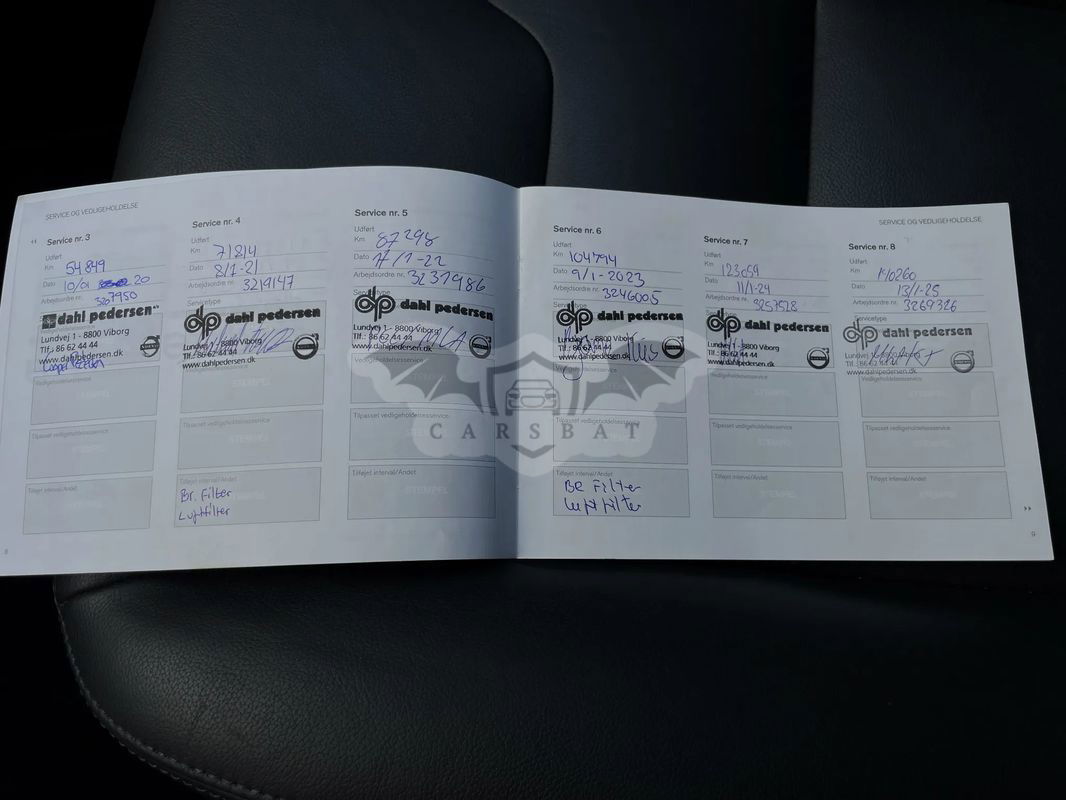 SERVICE OG VEDLIGEHOLDELSE
Service nr. 3
Udført
Km 54849
Dato 10/01 20
Arbejdsordre nr. 3207950
dahl pedersen
Lundvej 1 - 8800 Viborg
Tlf.: 86 62 44 44
www.dahlpedersen.dk
Vedligeholdelsesservice
STEMPEL
Tilpasset vedligeholdelsesservice
Tilføjet interval/Andet
Service nr. 4
Udført
Km 71814
Dato 8/1-21
Arbejdsordre nr. 3219147
Servicetype
dahl pedersen
Lundvej 1 - 8800 Viborg
Tlf.: 86 62 44 44
www.dahlpedersen.dk
STEMPEL
Tilpasset vedligeholdelsesservice
STEMPEL
Tilføjet interval/Andet
Br. Filter
Luftfilter
Service nr. 5
Udført
Km 87298
Dato 17/1-22
Arbejdsordre nr. 3237986
dahl pedersen
Lundvej 1 - 8800 Viborg
Tlf.: 86 62 44 44
www.dahlpedersen.dk
Vedligeholdelsesservice
Tilpasset vedligeholdelsesservice
Tilføjet interval/Andet
STEMPEL
8
SERVICE OG VEDLIGEHOLDELSE
Service nr. 6
Udført
Km 104794
Dato 9/1-2023
Arbejdsordre nr. 3246005
Servicetype
dahl pedersen
Lundvej 1 - 8800 Viborg
Tlf.: 86 62 44 44
www.dahlpedersen.dk
Vedligeholdelsesservice
Tilpasset vedligeholdelsesservice
STEMPEL
Tilføjet interval/Andet
BR Filter
Luftfilter
Service nr. 7
Udført
Km 123059
Dato 11/1-24
Arbejdsordre nr. 3257528
dahl pedersen
Lundvej 1 - 8800 Viborg
Tlf.: 86 62 44 44
www.dahlpedersen.dk
Vedligeholdelsesservice
STEMPEL
Tilpasset vedligeholdelsesservice
STEMPEL
Tilføjet interval/Andet
STEMPEL
Service nr. 8
Udført
Km 140260
Dato 13/1-25
Arbejdsordre nr. 3269326
Servicetype
dahl pedersen
Lundvej 1 - 8800 Viborg
Tlf.: 86 62 44 44
www.dahlpedersen.dk
Vedligeholdelsesservice
STEMPEL
Tilpasset vedligeholdelsesservice
STEMPEL
Tilføjet interval/Andet
STEMPEL
9
CARSBAT